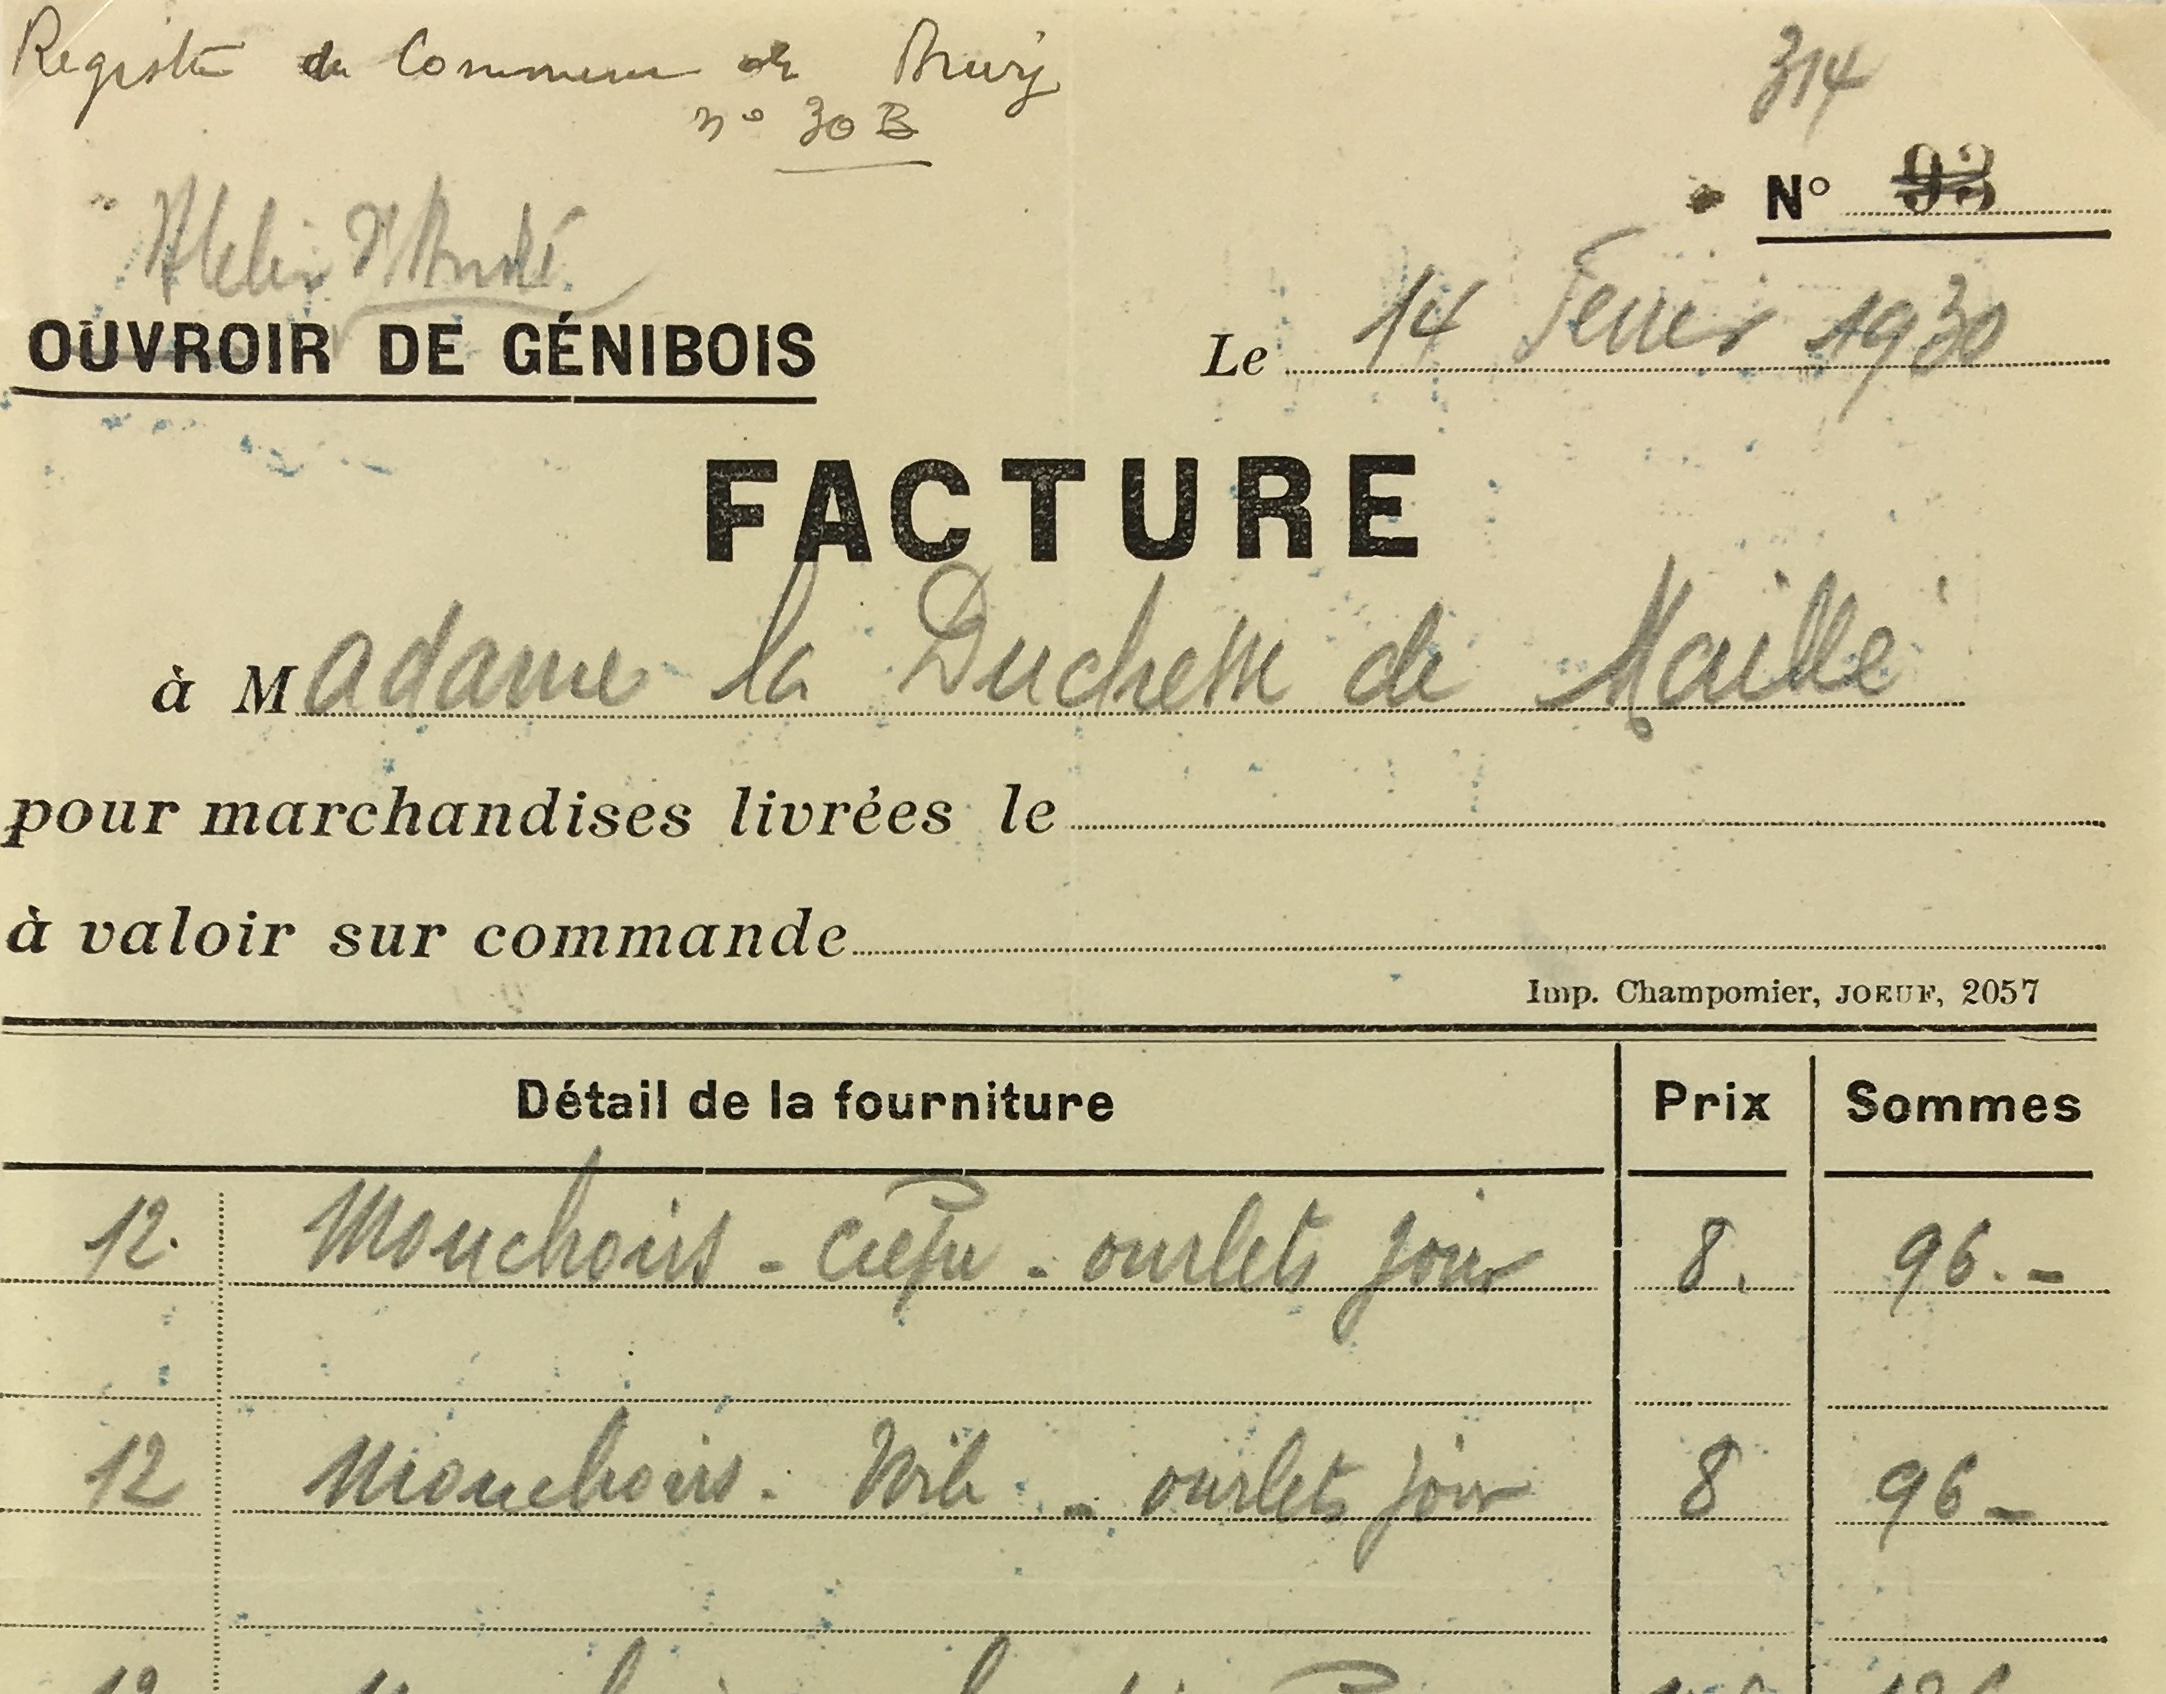 Registre du Commerce de Briey
n° 30 B
314
N° 93
OUVROIR DE GÉNIBOIS
Le 14 Fevrier 1930
FACTURE
à Madame la Duchesse de Maillé
pour marchandises livrées le
à valoir sur commande
Imp. Champomier, JOEUF, 2057
Détail de la fourniture Prix Sommes
12. Mouchoirs - - ourlets jour 8. 96.-
12 Mouchoirs. - ourlets jour 8 96-